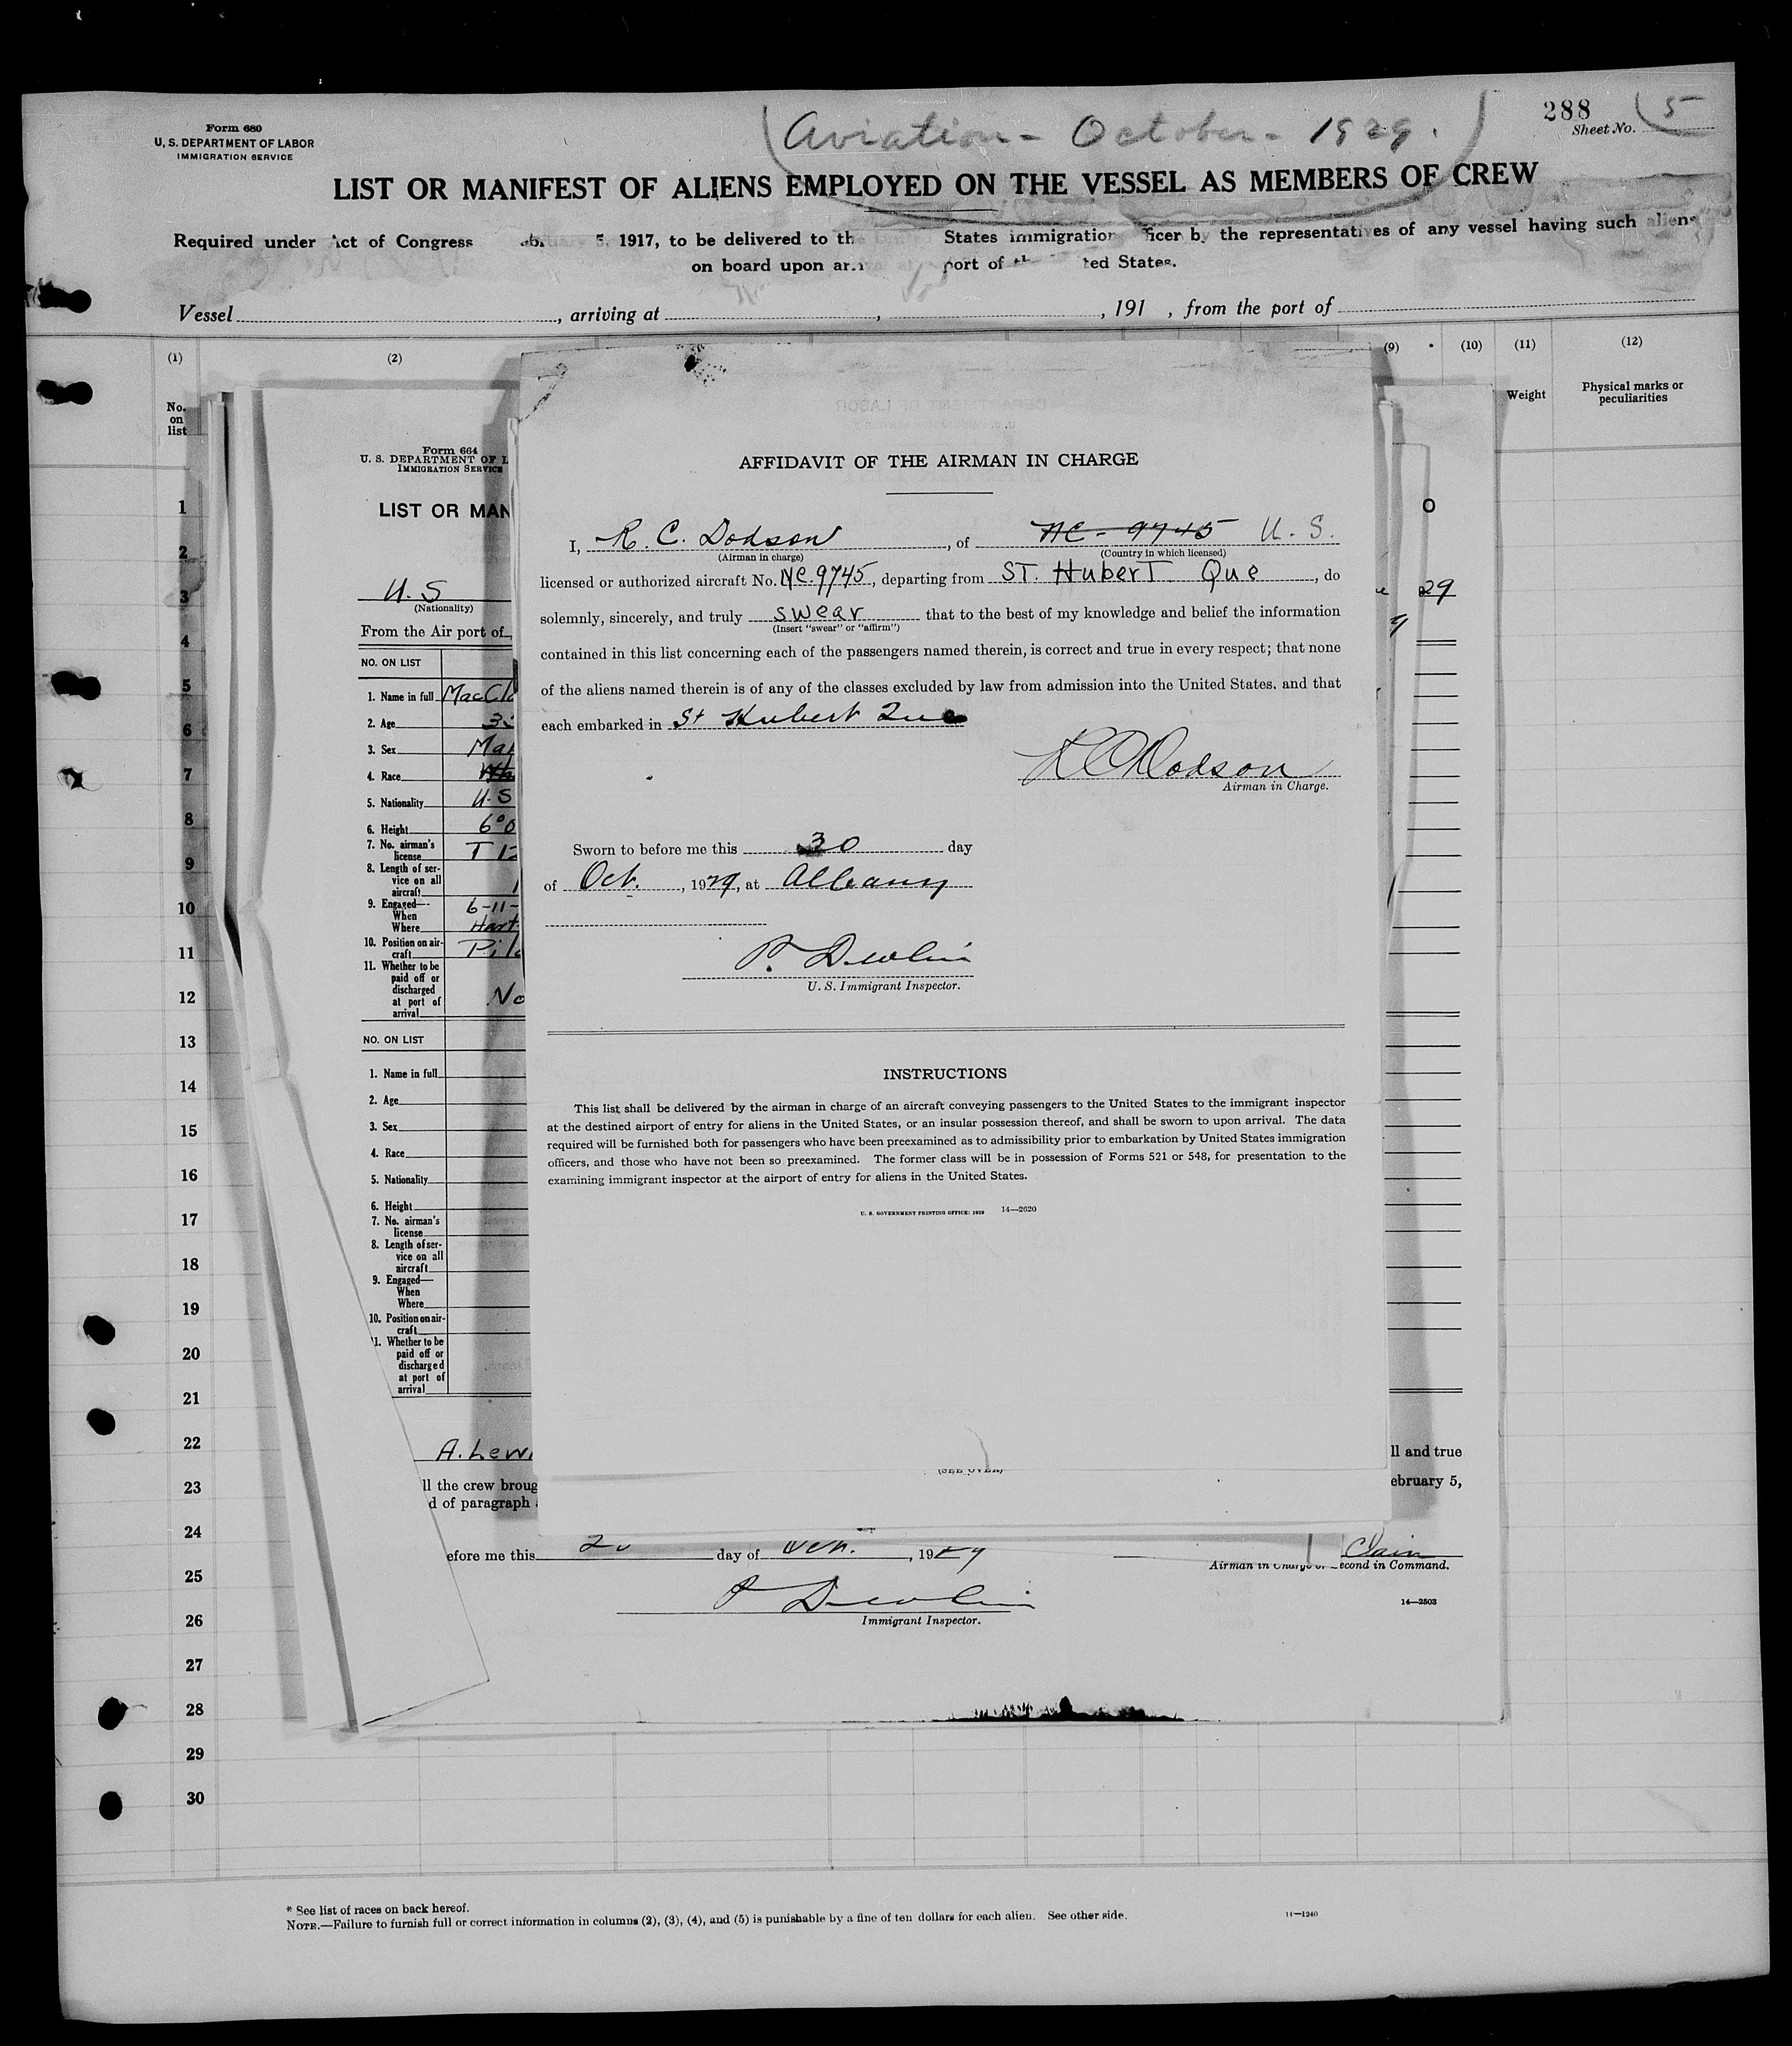 Form 680
U. S. DEPARTMENT OF LABOR
IMMIGRATION SERVICE
(Aviation - October - 1929.)
288
Sheet No. 5
LIST OR MANIFEST OF ALIENS EMPLOYED ON THE VESSEL AS MEMBERS OF CREW
Required under Act of Congress 5, 1917, to be delivered to the States immigration by the representatives of any vessel having such aliens
on board upon port of ted States.
Vessel , arriving at , , 191 , from the port of
(1) (2) (9) (10) (11) (12)
No. on list
Weight
Physical marks or peculiarities
1
2
3
4
5
6
7
8
9
10
11
12
13
14
15
16
17
18
19
20
21
22
23
24
25
26
27
28
29
30
Form 664
U. S. DEPARTMENT OF L
IMMIGRATION SERVICE
LIST OR MAN
U.S
(Nationality)
From the Air port of
NO. ON LIST
1. Name in full MacCl
2. Age
3. Sex Mal
4. Race
5. Nationality U.S
6. Height 6°0
7. No. airman's
license T 12
8. Length of ser-
vice on all
aircraft 1
9. Engaged—
When 6-11-
Where Hart
10. Position on air-
craft Pilo
11. Whether to be
paid off or
discharged
at port of
arrival No
NO. ON LIST
1. Name in full
2. Age
3. Sex
4. Race
5. Nationality
6. Height
7. No. airman's
license
8. Length of ser-
vice on all
aircraft
9. Engaged—
When
Where
10. Position on air-
craft
1. Whether to be
paid off or
discharged
at port of
arrival
A. Lew
ll the crew broug
d of paragraph
efore me this day of , 19
P Devlin
Immigrant Inspector.
O
29
ll and true
ebruary 5,
Clain
Airman in Charge or Second in Command.
14—2503
AFFIDAVIT OF THE AIRMAN IN CHARGE
I, R. C. Dodson , of NC-9745 U.S.
(Airman in charge) (Country in which licensed)
licensed or authorized aircraft No. NC.9745, departing from ST. HuberT Que , do
solemnly, sincerely, and truly swear that to the best of my knowledge and belief the information
(Insert "swear" or "affirm")
contained in this list concerning each of the passengers named therein, is correct and true in every respect; that none
of the aliens named therein is of any of the classes excluded by law from admission into the United States, and that
each embarked in St Hubert Que
R C Dodson
Airman in Charge.
Sworn to before me this 30 day
of Oct. , 1929, at Albany
P. Devlin
U. S. Immigrant Inspector.
INSTRUCTIONS
This list shall be delivered by the airman in charge of an aircraft conveying passengers to the United States to the immigrant inspector
at the destined airport of entry for aliens in the United States, or an insular possession thereof, and shall be sworn to upon arrival. The data
required will be furnished both for passengers who have been preexamined as to admissibility prior to embarkation by United States immigration
officers, and those who have not been so preexamined. The former class will be in possession of Forms 521 or 548, for presentation to the
examining immigrant inspector at the airport of entry for aliens in the United States.
U. S. GOVERNMENT PRINTING OFFICE: 1929 14—2620
(SEE OVER)
* See list of races on back hereof.
NOTE.—Failure to furnish full or correct information in columns (2), (3), (4), and (5) is punishable by a fine of ten dollars for each alien. See other side.
14—1240